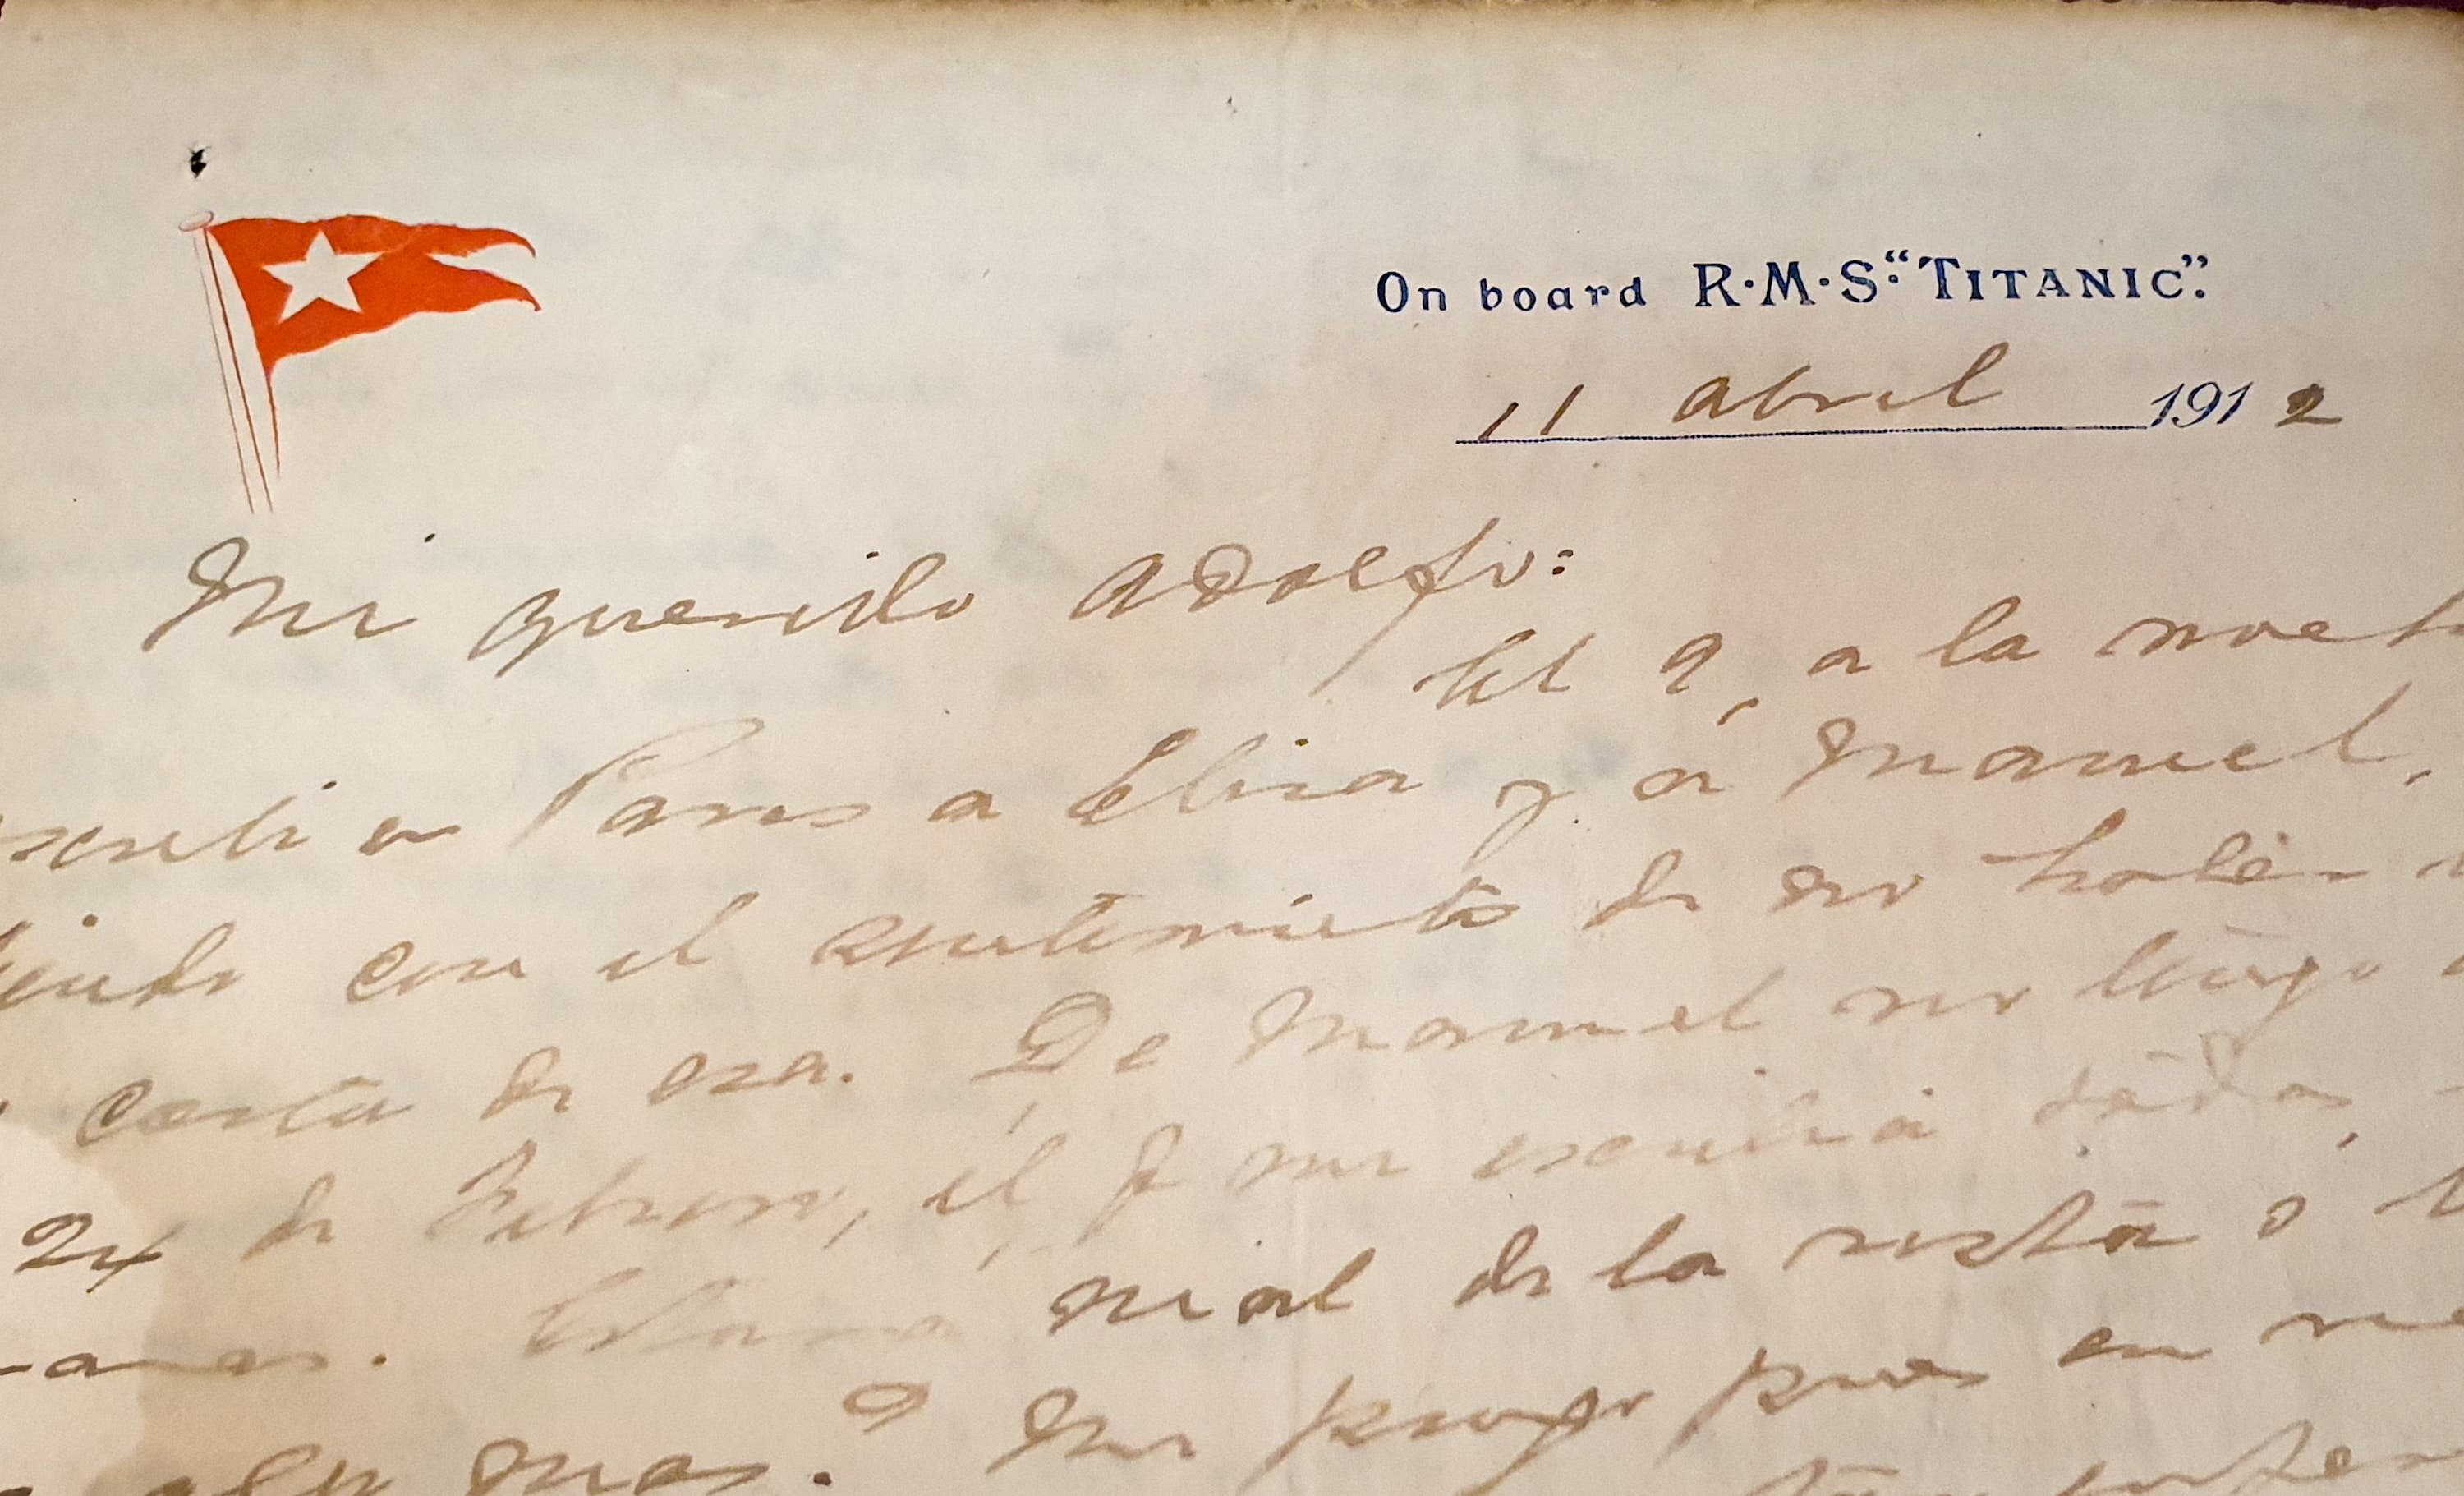 On board R·M·S. "TITANIC".
11 abril 1912
Mi querido Adolfo:
El 9, a la noch
escribi a Paris a Elisa y a Manuel,
con el sentimiento de no haber
carta de esa. De Manuel no tengo
24 de Febrero, él q me escribia todas
Estará mal de la vista o
mas. ? Me pongo pues en